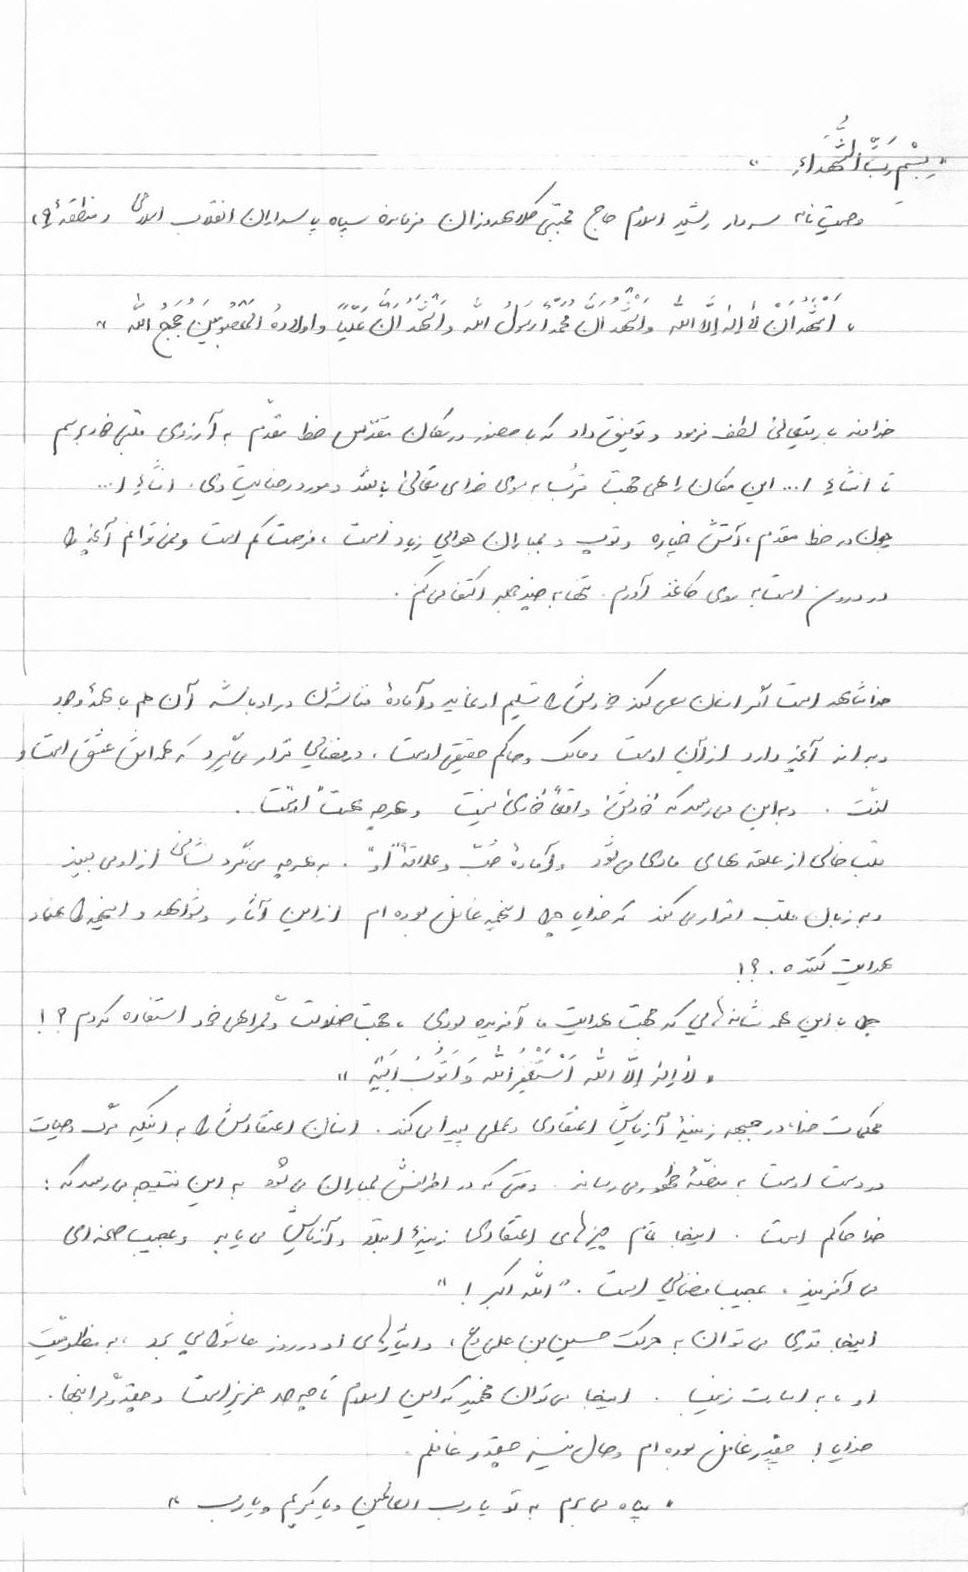 « بِسْمِ رَبِّ الشُّهَداءِ »
وصیت نامه سردار رشید اسلام حاج مجتبی کلاهدوزان فرمانده سپاه پاسداران انقلاب اسلامی منطقهٔ ۹
« اَشْهَدُ اَنْ لا اِلهَ اِلاَّ اللّه وَ اَشْهَدُ اَنَّ مُحَمَّداً رَسُولُ اللّه وَ اَشْهَدُ اَنَّ عَلِیّاً و اولادهُ المَعْصُومینَ حُجَجُ اللّه »
خداوند باریتعالی لطف فرمود و توفیق داد که با حضور در مکان مقدّس خط مقدّم به آرزوی قلبی خود برسم
تا انشاءِ ا... این مکان راهی جهت تقرّب به سوی خدای متعالی باشد و مورد رضایت وی. انشاءِ ا...
چون در خط مقدم، آتش خمپاره و توپ و بمباران هوایی زیاد است، فرصت کم است و نمی توانم آنچه را
در درون است به روی کاغذ آورم. تنها به چند جمله اکتفا می کنم.
خدا شاهد است اگر انسان سعی کند خودش را تسلیم او نماید و آمادهٔ فنا شدن در او باشد آن هم با همهٔ وجود
و بداند آنچه دارد از آنِ اوست و مالک و حاکم حقیقی اوست، در فضایی قرار می گیرد که همه اش عشق است و
لذّت. و به این می رسد که خودش واقعاً خودی نیست و هرچه هست اوست.
قلب خالی از علقه های مادی می شود و آمادهٔ حُبّ و علاقهٔ او. به هرچه می نگرد نشانی از او می بیند
و به زبان قلب اقرار می کند که خدایا چرا اینهمه غافل بوده ام از این آثار و شواهد و اینهمه راهنما و
هدایت کننده.؟!
چرا با این همه نشانه هایی که جهت هدایت ما آفریده بودی، جهت ضلالت و گمراهی خود استفاده کردم؟!
« لا اِلهَ اِلاَّ اللّه اَسْتَغْفِرُ اللّه وَ اَتُوبُ اِلَیْهِ »
محکمات خدا، در جبهه زمینهٔ آزمایش اعتقادی و عملی پیدا می کند. انسان اعتقادش را به اینکه مرگ و حیات
در دست اوست به منصّهٔ ظهور می رساند. وقتی که در اطرافش بمباران می شود به این نتیجه می رسد که:
خدا حاکم است. اینجا تمام چیزهای اعتقادی زمینهٔ ابتلاء و آزمایش می یابد و عجیب صحنه ای
می آفریند، عجیب فضایی است. «اللّه اکبر!»
اینجا قدری می توان به حرکت حسین بن علی (ع)، و ایثارهای او در روز عاشورا پی برد، به مظلومیّت
او، به اسارت زینب. اینجا می توان فهمید که این اسلام تا چه حد عزیز است و چقدر گرانبها.
خدایا! چقدر غافل بوده ام و حال نیز چقدر غافلم.
« پناه می برم به تو یا رب العالمین و یا کریم و یا رب »